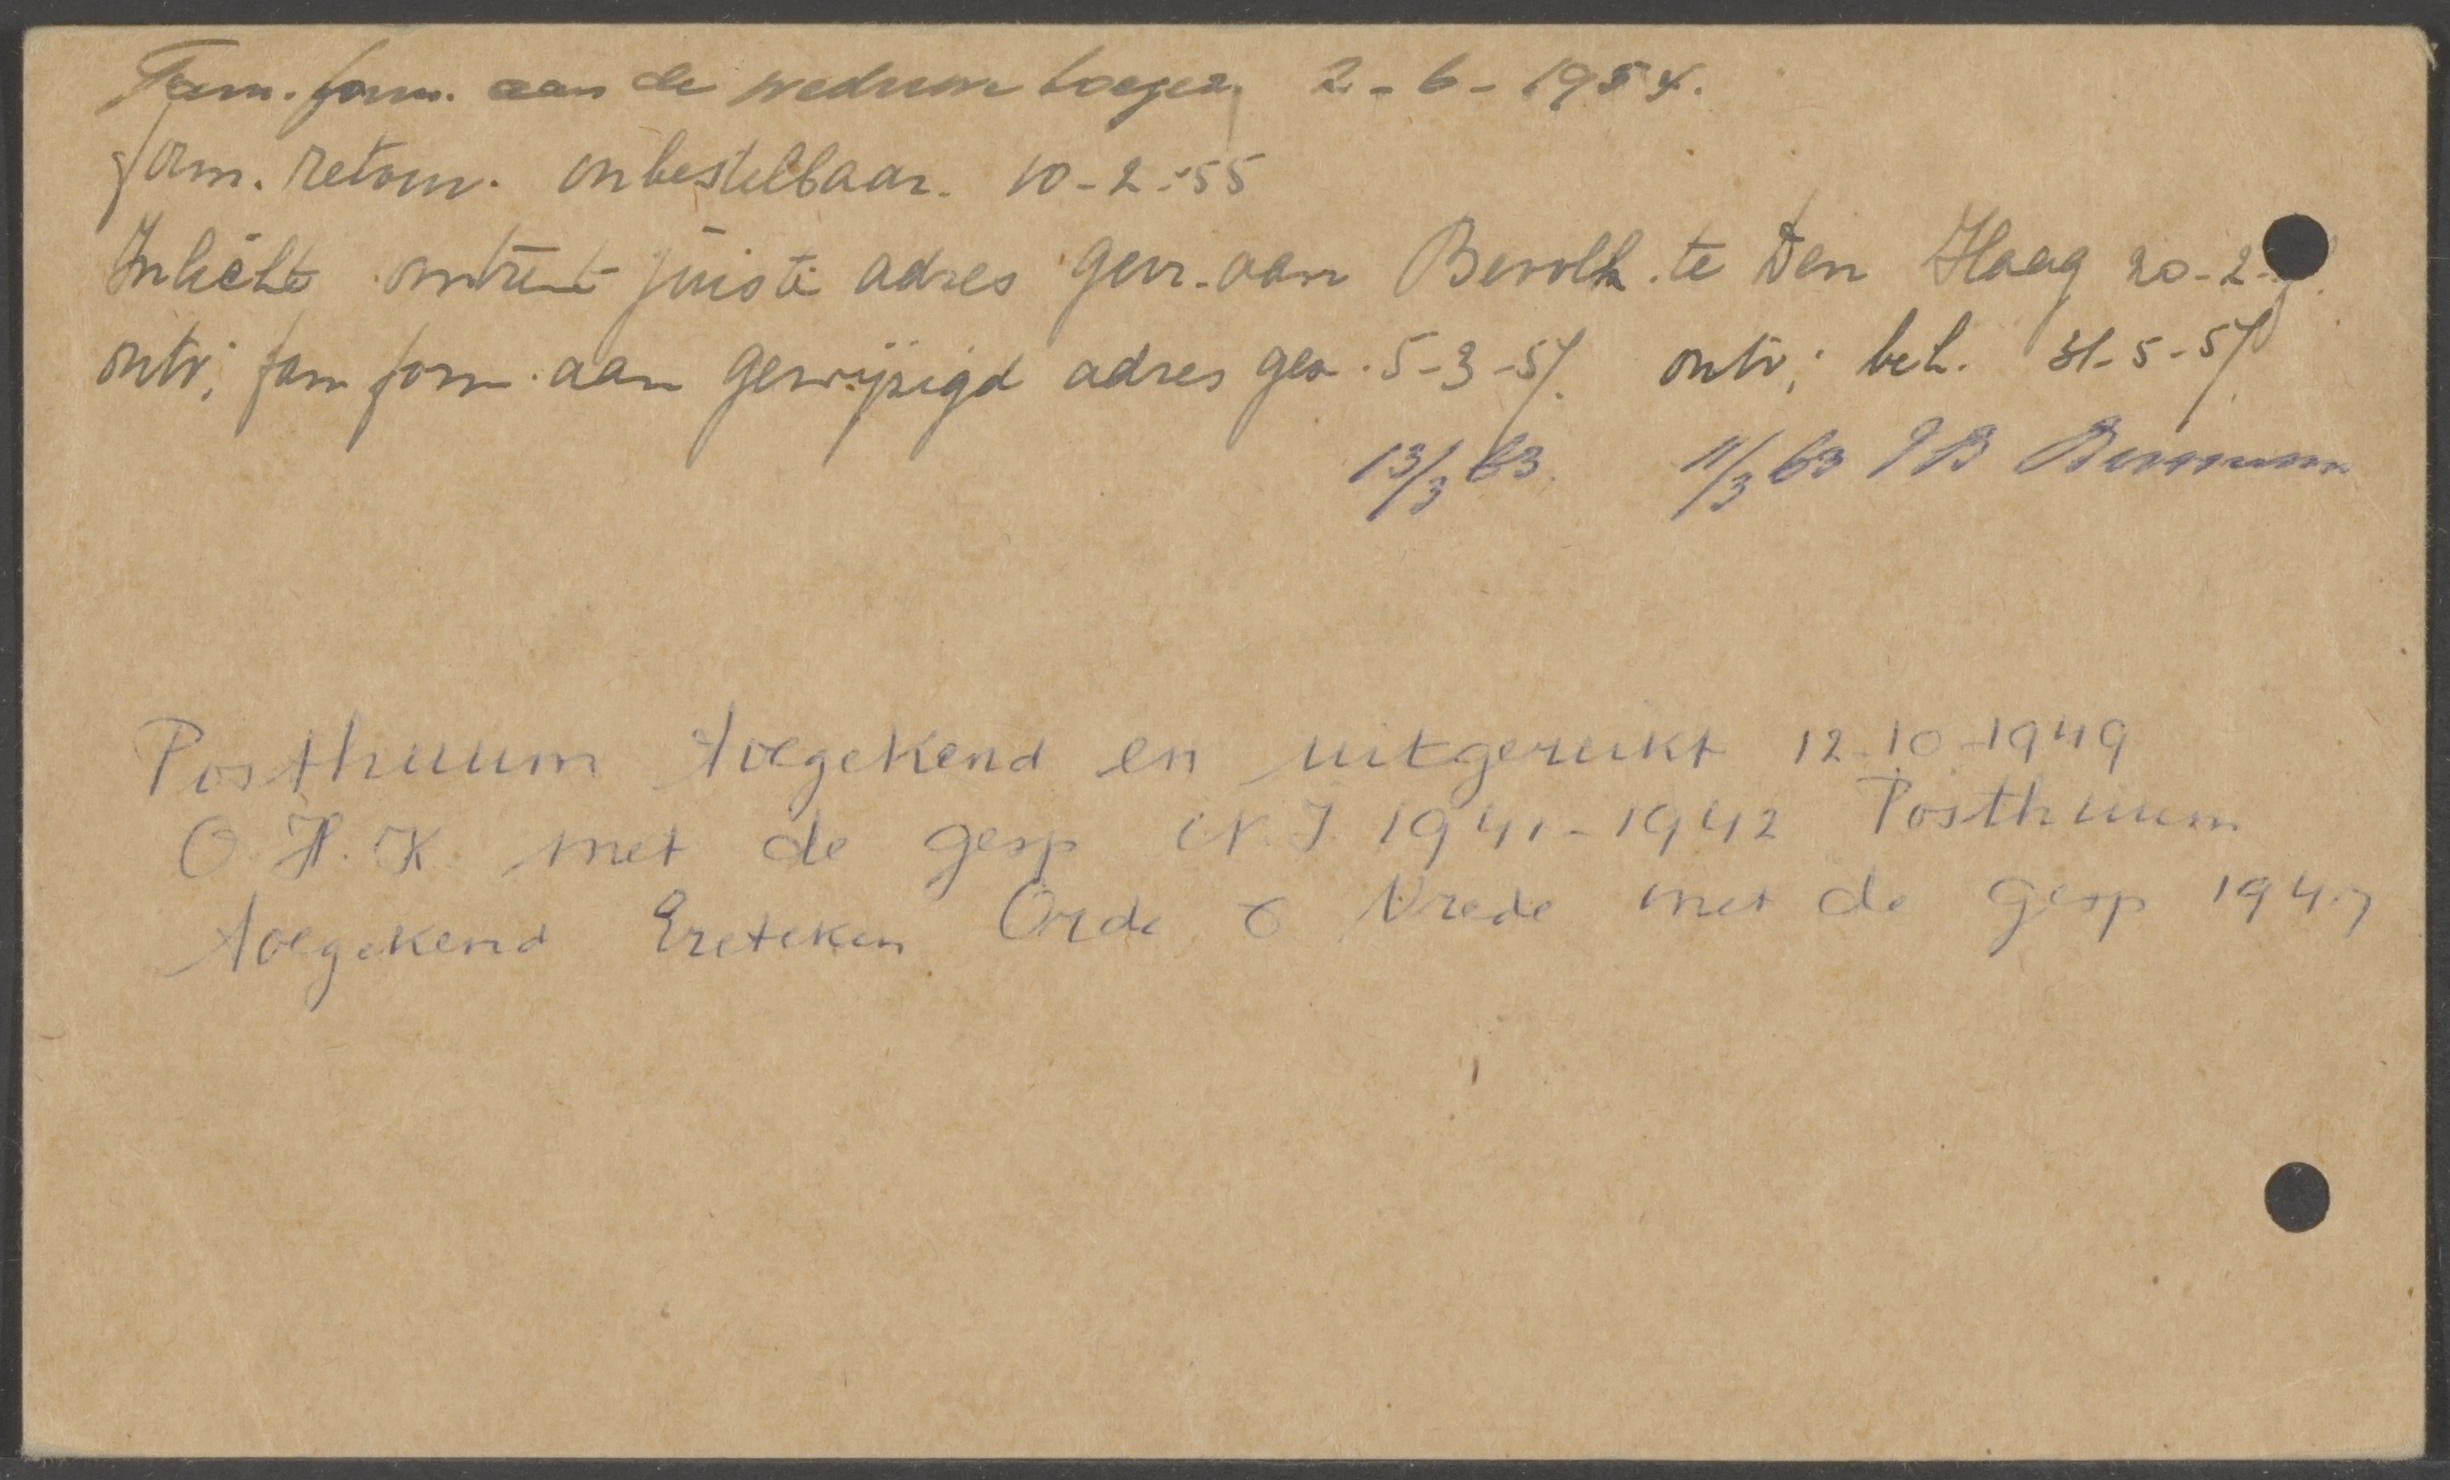 Fam. form. aan de weduwe toegez. 2-6-1954.
form. retour. onbestelbaar. 10-2-'55
Inlicht omtrent juiste adres gevr. aan Bevolk. te Den Haag 20-2-
ontv; fam form. aan gewijzigd adres gez. 5-3-57. ontv; beh. 31-5-57
13/3 63. 11/3 63
Posthuum toegekend en uitgereikt 12-10-1949
O.H.K. met de gesp N.I. 1941-1942 Posthuum
toegekend Ereteken Orde & Vrede met de gesp 1947